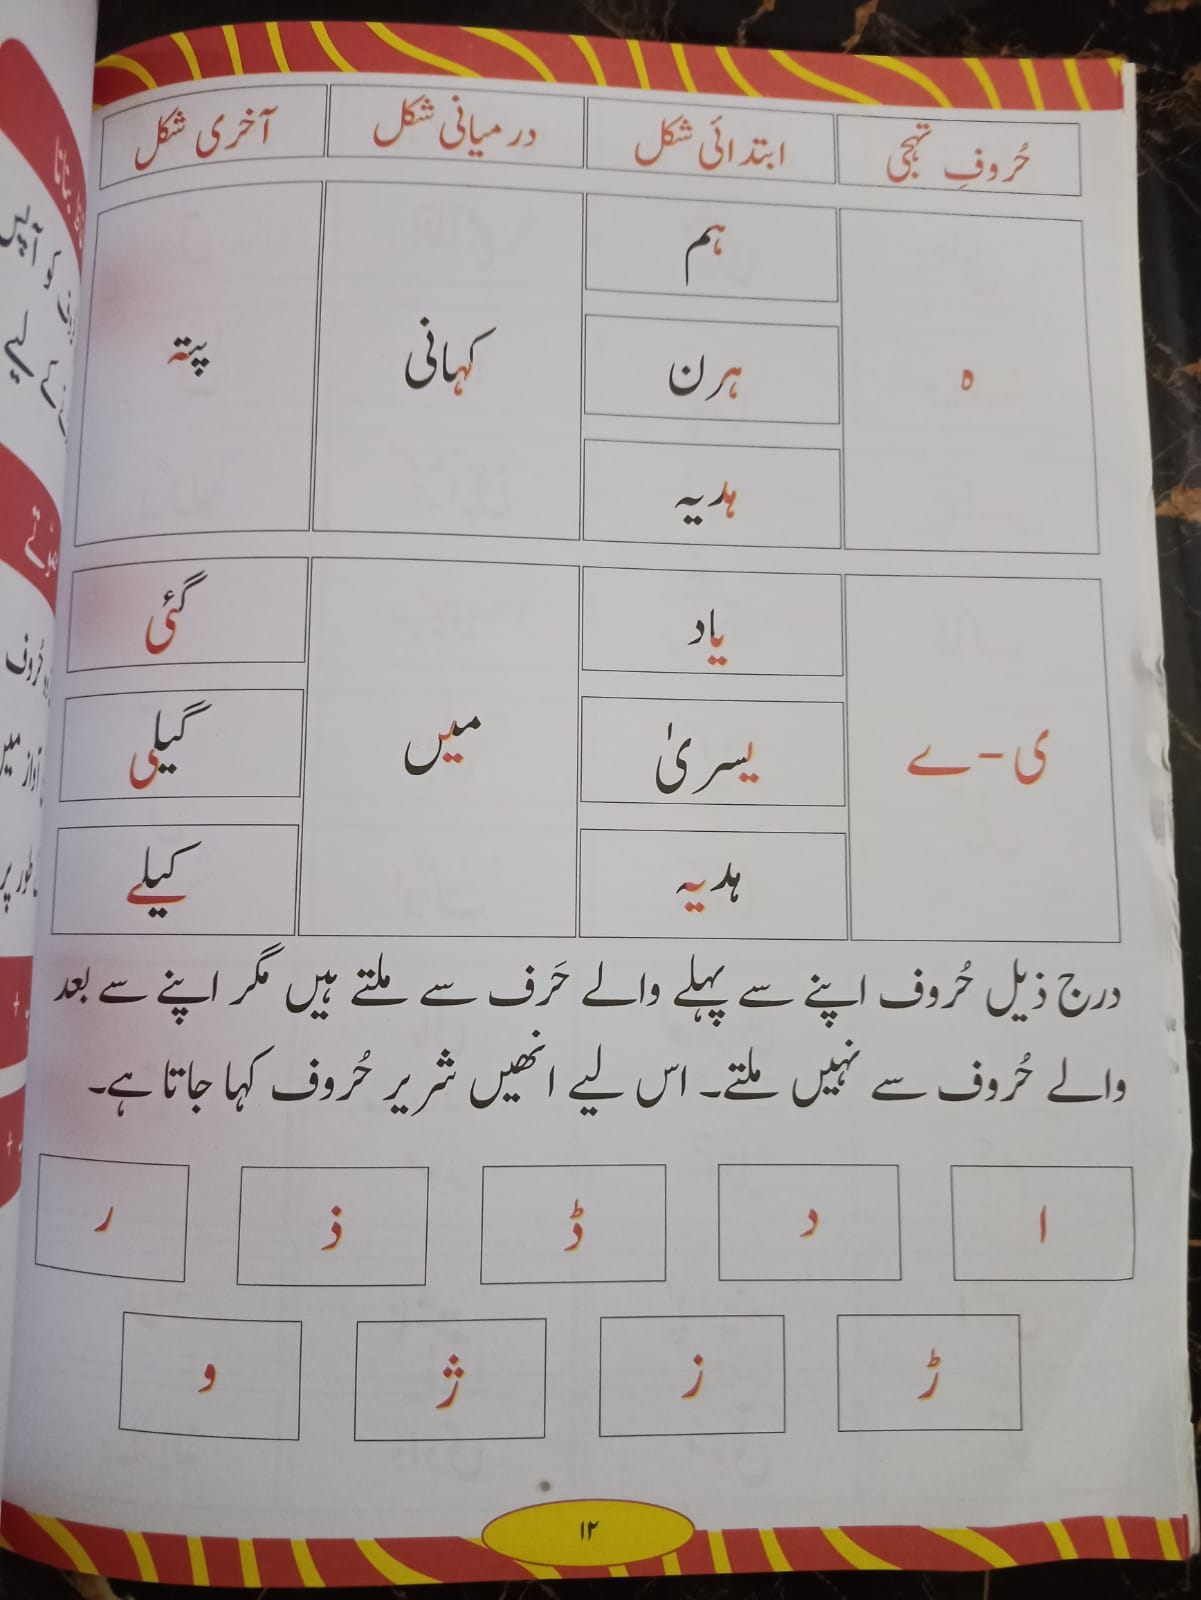 حُروفِ تہجی ابتدائی شکل درمیانی شکل آخری شکل
ہ ہم کہانی پتہ
ہرن
ہدیہ
ی - ے یاد میں گئی
یسریٰ گیلی
ہدیہ کیلے
درج ذیل حُروف اپنے سے پہلے والے حَرف سے ملتے ہیں مگر اپنے سے بعد
والے حُروف سے نہیں ملتے۔ اس لیے انھیں شریر حُروف کہا جاتا ہے۔
ا د ڈ ذ ر
ڑ ز ژ و
۱۲
بنانا
کو آپس
کے لیے
حُروف
آواز میں
طور پر